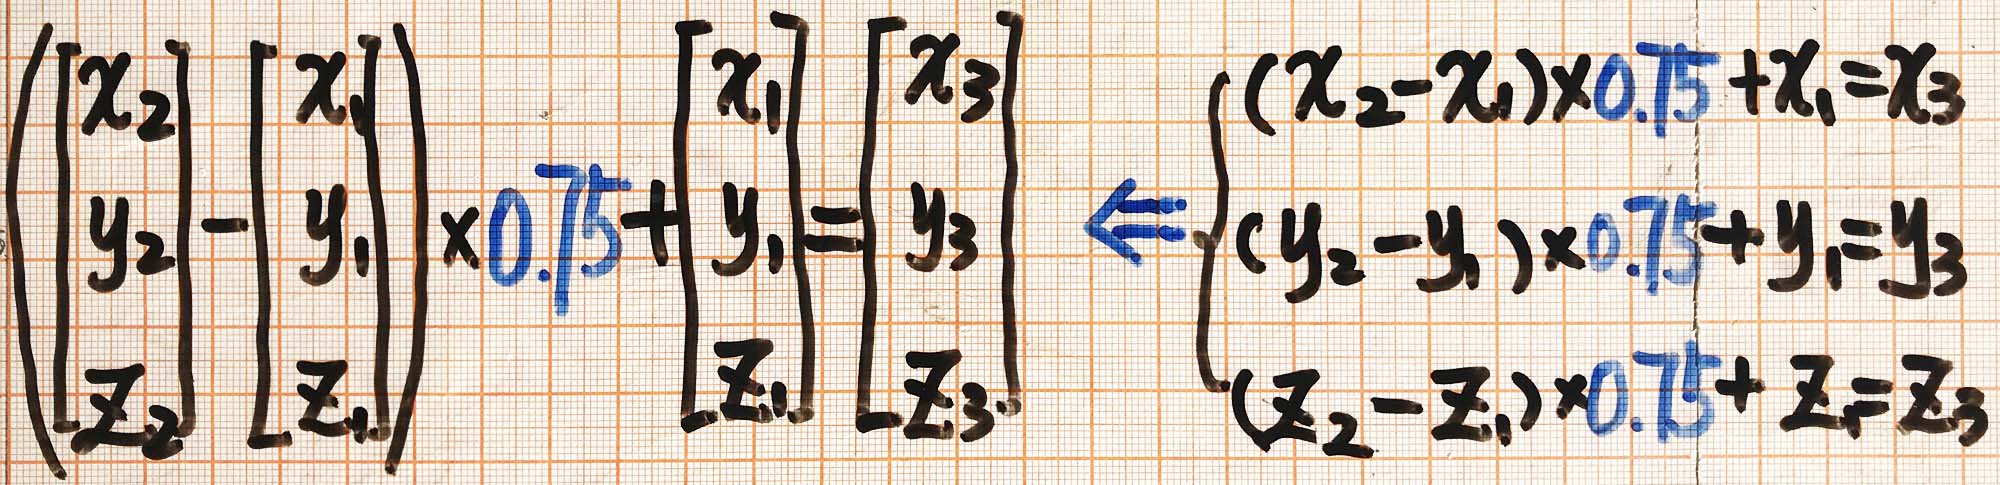 ([x₂ y₂ z₂] - [x₁ y₁ z₁]) × 0.75 + [x₁ y₁ z₁] = [x₃ y₃ z₃] ⇐
(x₂-x₁)×0.75+x₁=x₃
(y₂-y₁)×0.75+y₁=y₃
(z₂-z₁)×0.75+z₁=z₃